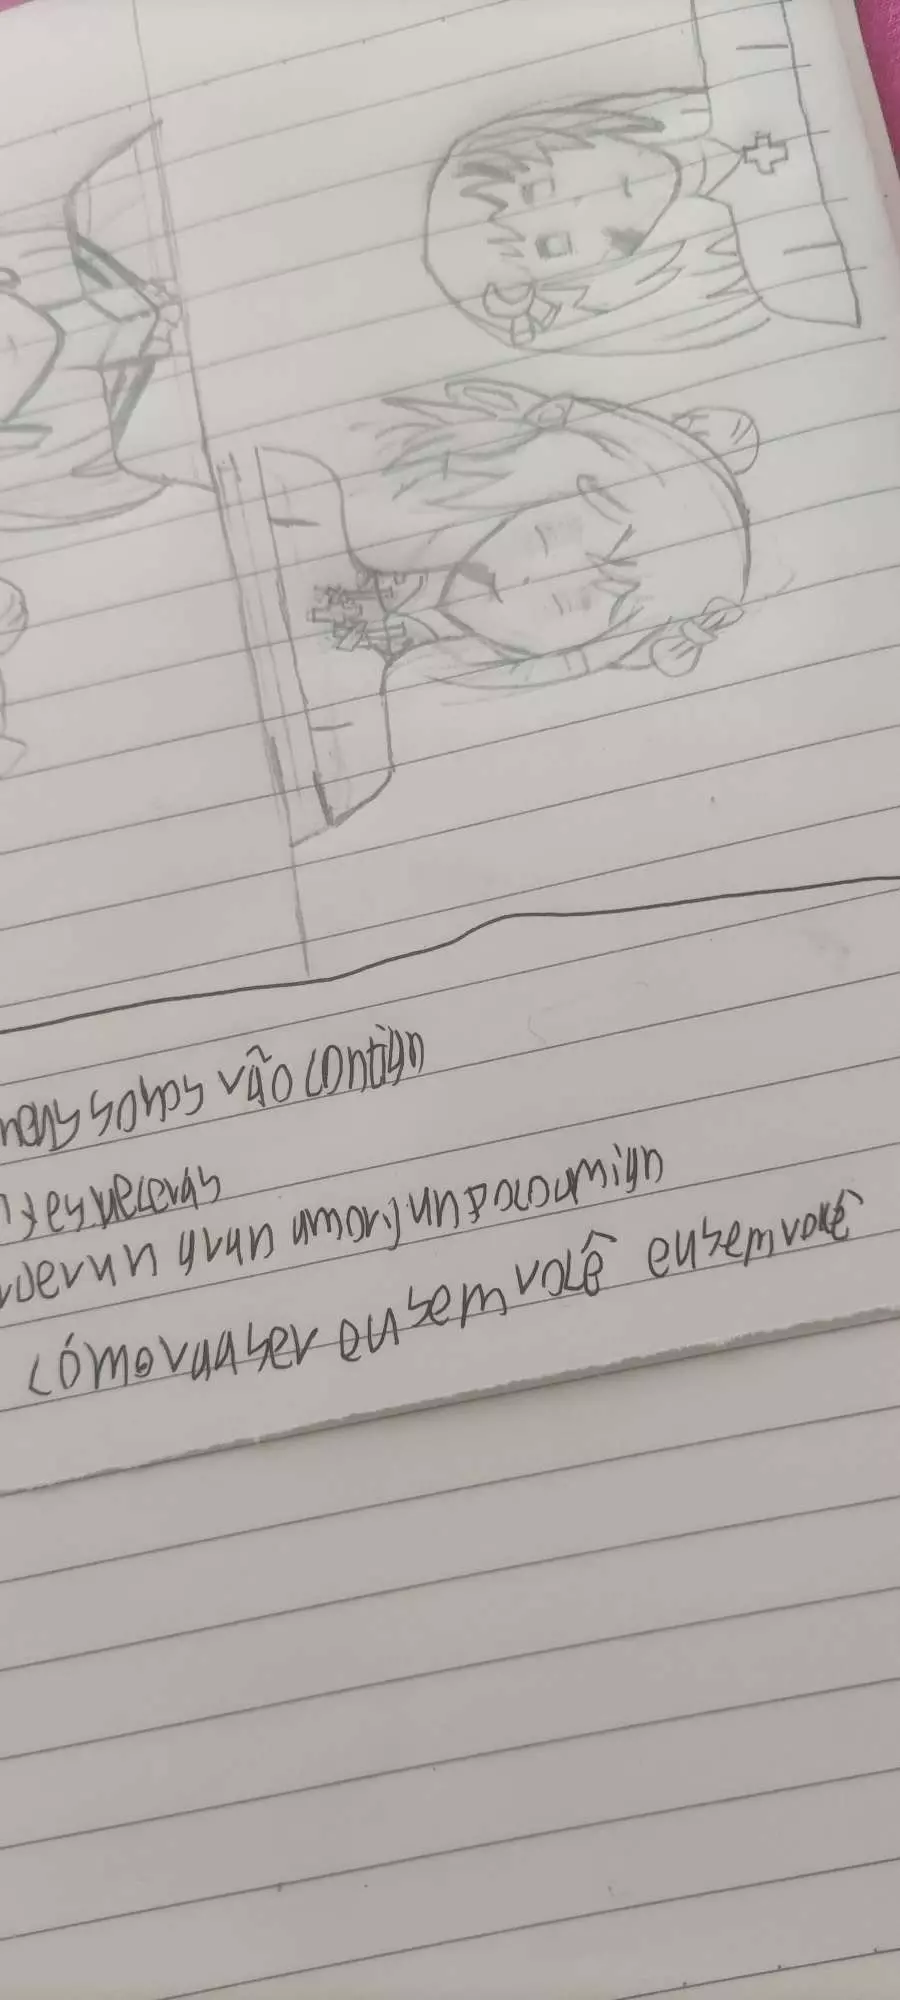 meus sonos vão contign
esqueceras
un gran amor y un poco a mign
cómo va a ser eu sem você eu sem você